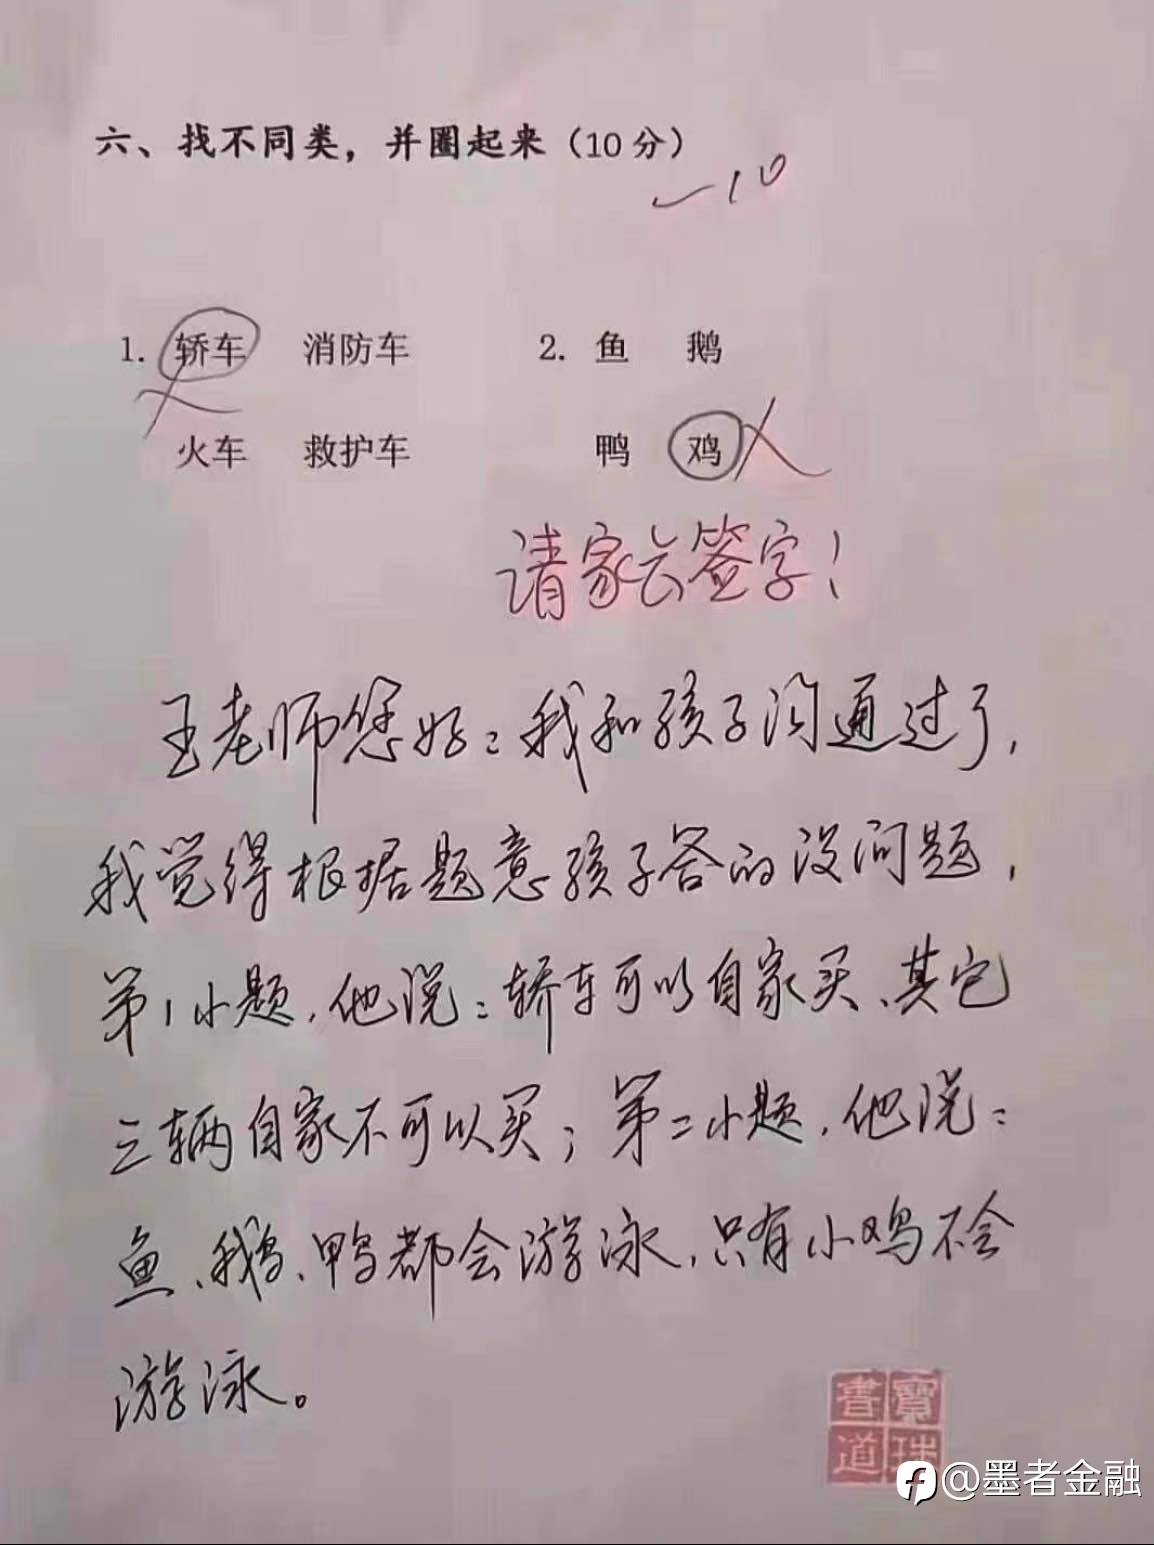 六、找不同类，并圈起来（10分）
-10
1. 轿车 消防车
火车 救护车
2. 鱼 鹅
鸭 鸡
请家长签字！
王老师您好：我和孩子沟通过了，
我觉得根据题意孩子答的没问题，
第1小题，他说：轿车可以自家买、其它
三辆自家不可以买；第二小题，他说：
鱼、鹅、鸭都会游泳，只有小鸡不会
游泳。
書寶
道珠
@墨者金融